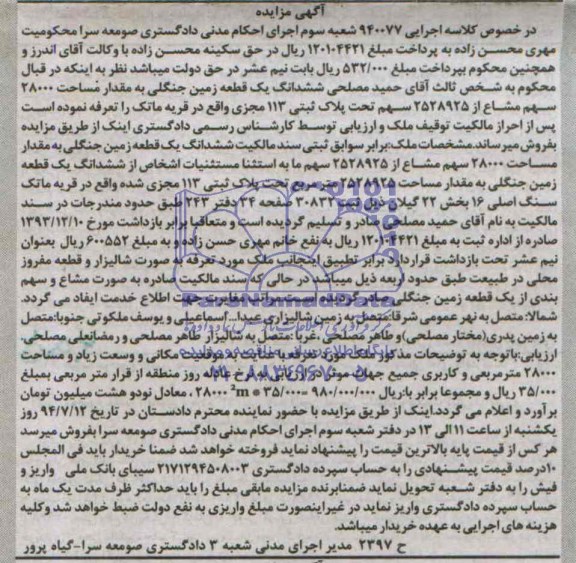 آگهی مزایده
در خصوص کلاسه اجرایی ۹۴۰۰۷۷ شعبه سوم اجرای احکام مدنی دادگستری صومعه سرا محکومیت
مهری محسن زاده به پرداخت مبلغ ۱۲۰۱۰۴۴۲۱ ریال در حق سکینه محسن زاده با وکالت آقای اندرز و
همچنین محکوم بپرداخت مبلغ ۵۳۲/۰۰۰ ریال بابت نیم عشر در حق دولت میباشد نظر به اینکه در قبال
محکوم به شخص ثالث آقای حمید مصلحی ششدانگ یک قطعه زمین جنگلی به مقدار مساحت ۲۸۰۰۰
سهم مشاع از ۲۵۲۸۹۲۵ سهم تحت پلاک ثبتی ۱۱۳ مجزی واقع در قریه ماتک را تعرفه نموده است
پس از احراز مالکیت توقیف ملک و ارزیابی توسط کارشناس رسمی دادگستری اینک از طریق مزایده
بفروش میرساند.مشخصات ملک:برابر سوابق ثبتی سند مالکیت ششدانگ یک قطعه زمین جنگلی به مقدار
مساحت ۲۸۰۰۰ سهم مشاع از ۲۵۲۸۹۲۵ سهم ما به استثنا مستثنیات اشخاص از ششدانگ یک قطعه
زمین جنگلی به مقدار مساحت ۲۵۲۸۹۲۵ متر مربع تحت پلاک ثبتی ۱۱۳ مجزی شده واقع در قریه ماتک
سنگ اصلی ۱۶ بخش ۲۲ گیلان ذیل ثبت ۳۰۸۳۲ صفحه ۲۴ دفتر ۲۴۳ طبق حدود مندرجات در سند
مالکیت به نام آقای حمید مصلحی صادر و تسلیم گردیده است و متعاقبا برابر بازداشت مورخ ۱۳۹۳/۱۲/۱۰
صادره از اداره ثبت به مبلغ ۱۲۰۱۰۴۴۲۱ ریال به نفع خانم مهری حسن زاده و به مبلغ ۶۰۰۵۵۲ ریال بعنوان
نیم عشر تحت بازداشت قرار دارد برابر تطبیق اینجانب ملک مورد تعرفه به صورت شالیزار و قطعه مفروز
محلی در طبیعت طبق حدود اربعه ذیل میباشد در حالی که سند مالکیت صادره به صورت مشاع و سهم
بندی از یک قطعه زمین جنگلی صادر گردیده است مراتب مغایرت جهت اطلاع خدمت ایفاد می گردد.
شمالا: متصل به نهر عمومی شرقا:متصل به زمین شالیزاری عبدا...اسماعیلی و یوسف ملکوتی جنوبا:متصل
به زمین پدری(مختار مصلحی)و طاهر مصلحی .غربا:متصل به شالیزار طاهر مصلحی و رمضانعلی مصلحی.
ارزیابی:باتوجه به توضیحات مذکور مساحت مورد توقیف موقعیت مکانی و وسعت زیاد و مساحت
۲۸۰۰۰ مترمربعی و کاربری جمیع جهات موثر در ارزیابی به نرخ عادله روز منطقه از قرار متر مربعی بمبلغ
۳۵/۰۰۰ ریال و مجموعا برابر با:ریال ۹۸۰/۰۰۰/۰۰۰ =۳۵/۰۰۰ * ۲۸۰۰۰ m² ، معادل نودو هشت میلیون تومان
برآورد و اعلام می گردد.اینک از طریق مزایده با حضور نماینده محترم دادستان در تاریخ ۹۴/۷/۱۲ روز
یکشنبه از ساعت ۱۱ الی ۱۳ در دفتر شعبه سوم اجرای احکام مدنی دادگستری صومعه سرا بفروش میرسد
هر کس از قیمت پایه بالاترین قیمت را پیشنهاد نماید فروخته خواهد شد ضمنا خریدار باید فی المجلس
۱۰درصد قیمت پیشنهادی را به حساب سپرده دادگستری ۲۱۷۱۲۹۴۵۰۸۰۰۳ سیبای بانک ملی واریز و
فیش را به دفتر شعبه تحویل نماید ضمنابرنده مزایده مابقی مبلغ را باید حداکثر ظرف مدت یک ماه به
حساب سپرده دادگستری واریز نماید در غیراینصورت مبلغ واریزی به نفع دولت ضبط خواهد شد وکلیه
هزینه های اجرایی به عهده خریدار میباشد.
ح ۲۳۹۷ مدیر اجرای مدنی شعبه ۳ دادگستری صومعه سرا-گیاه پرور